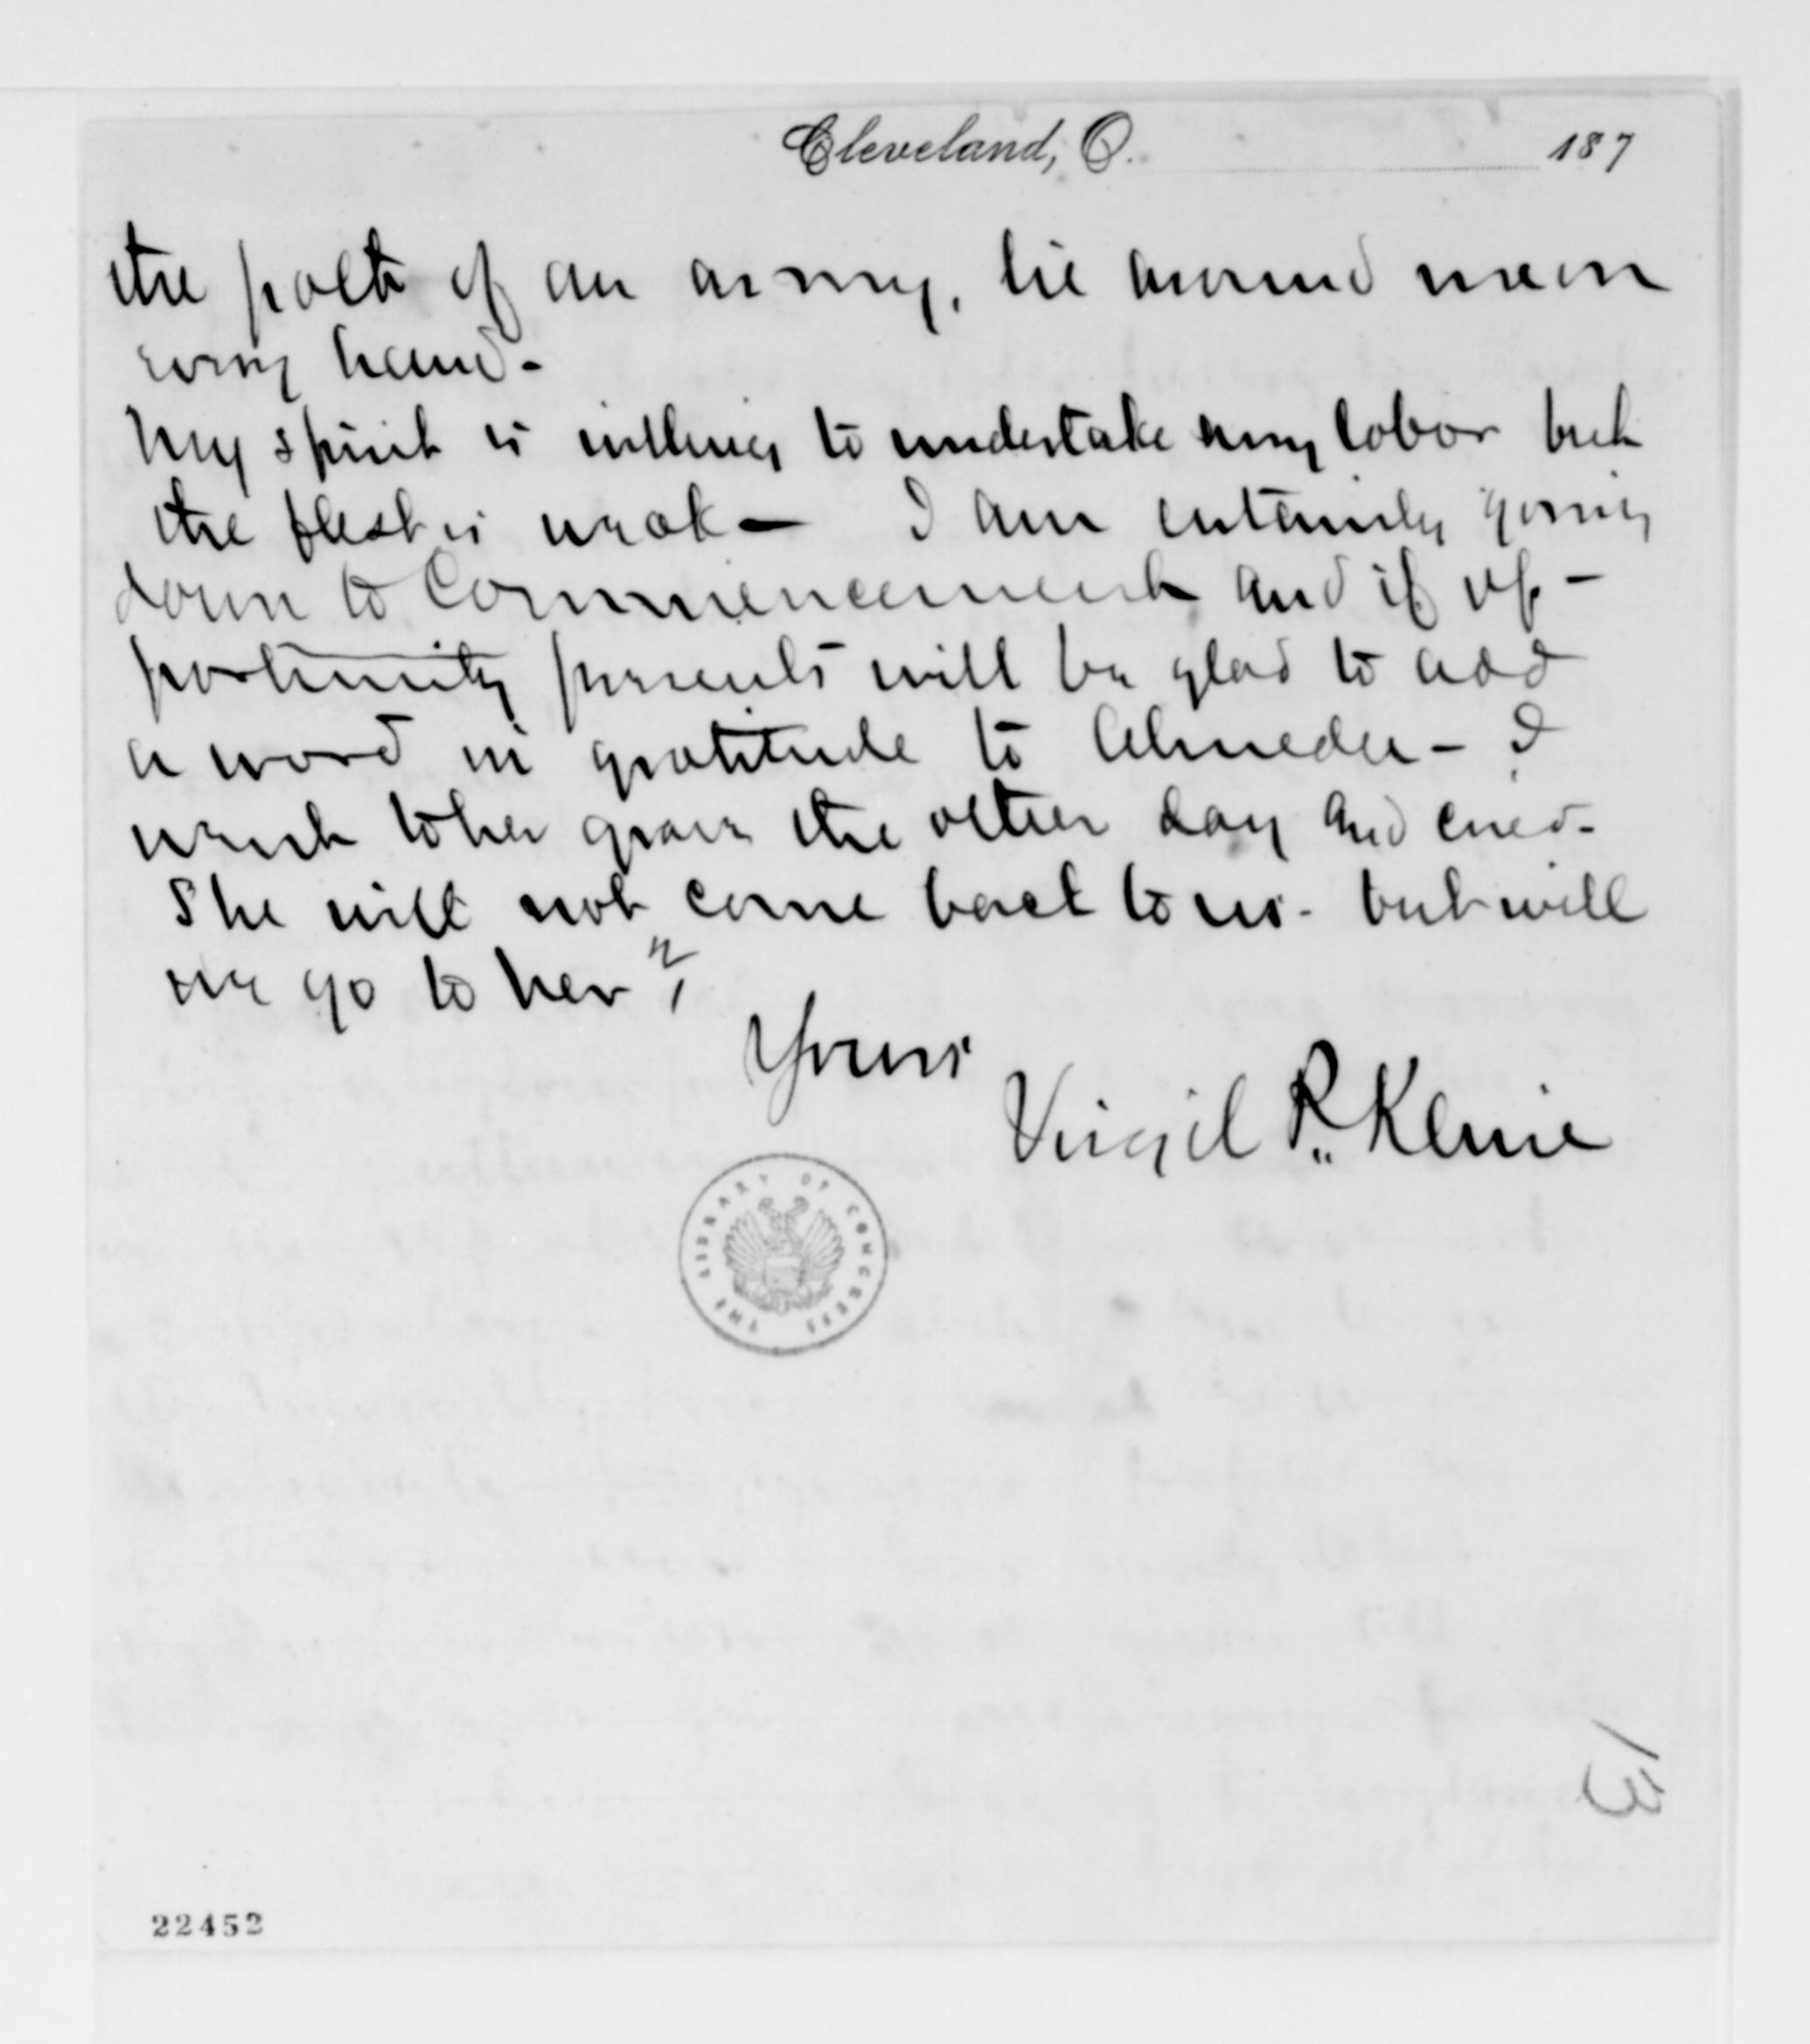 Cleveland, O. 187
the path of an army, lie around me on
every hand-
My spirit is willing to undertake any labor but
the flesh is weak — I am certainly going
down to Commencement and if op-
portunity presents will be glad to add
a word in gratitude to Almeda - I
went to her grave the other day and cried-
She will not come back to us - but will
we go to her?
Yours
Virgil P. Kline
THE LIBRARY OF CONGRESS
13
22452